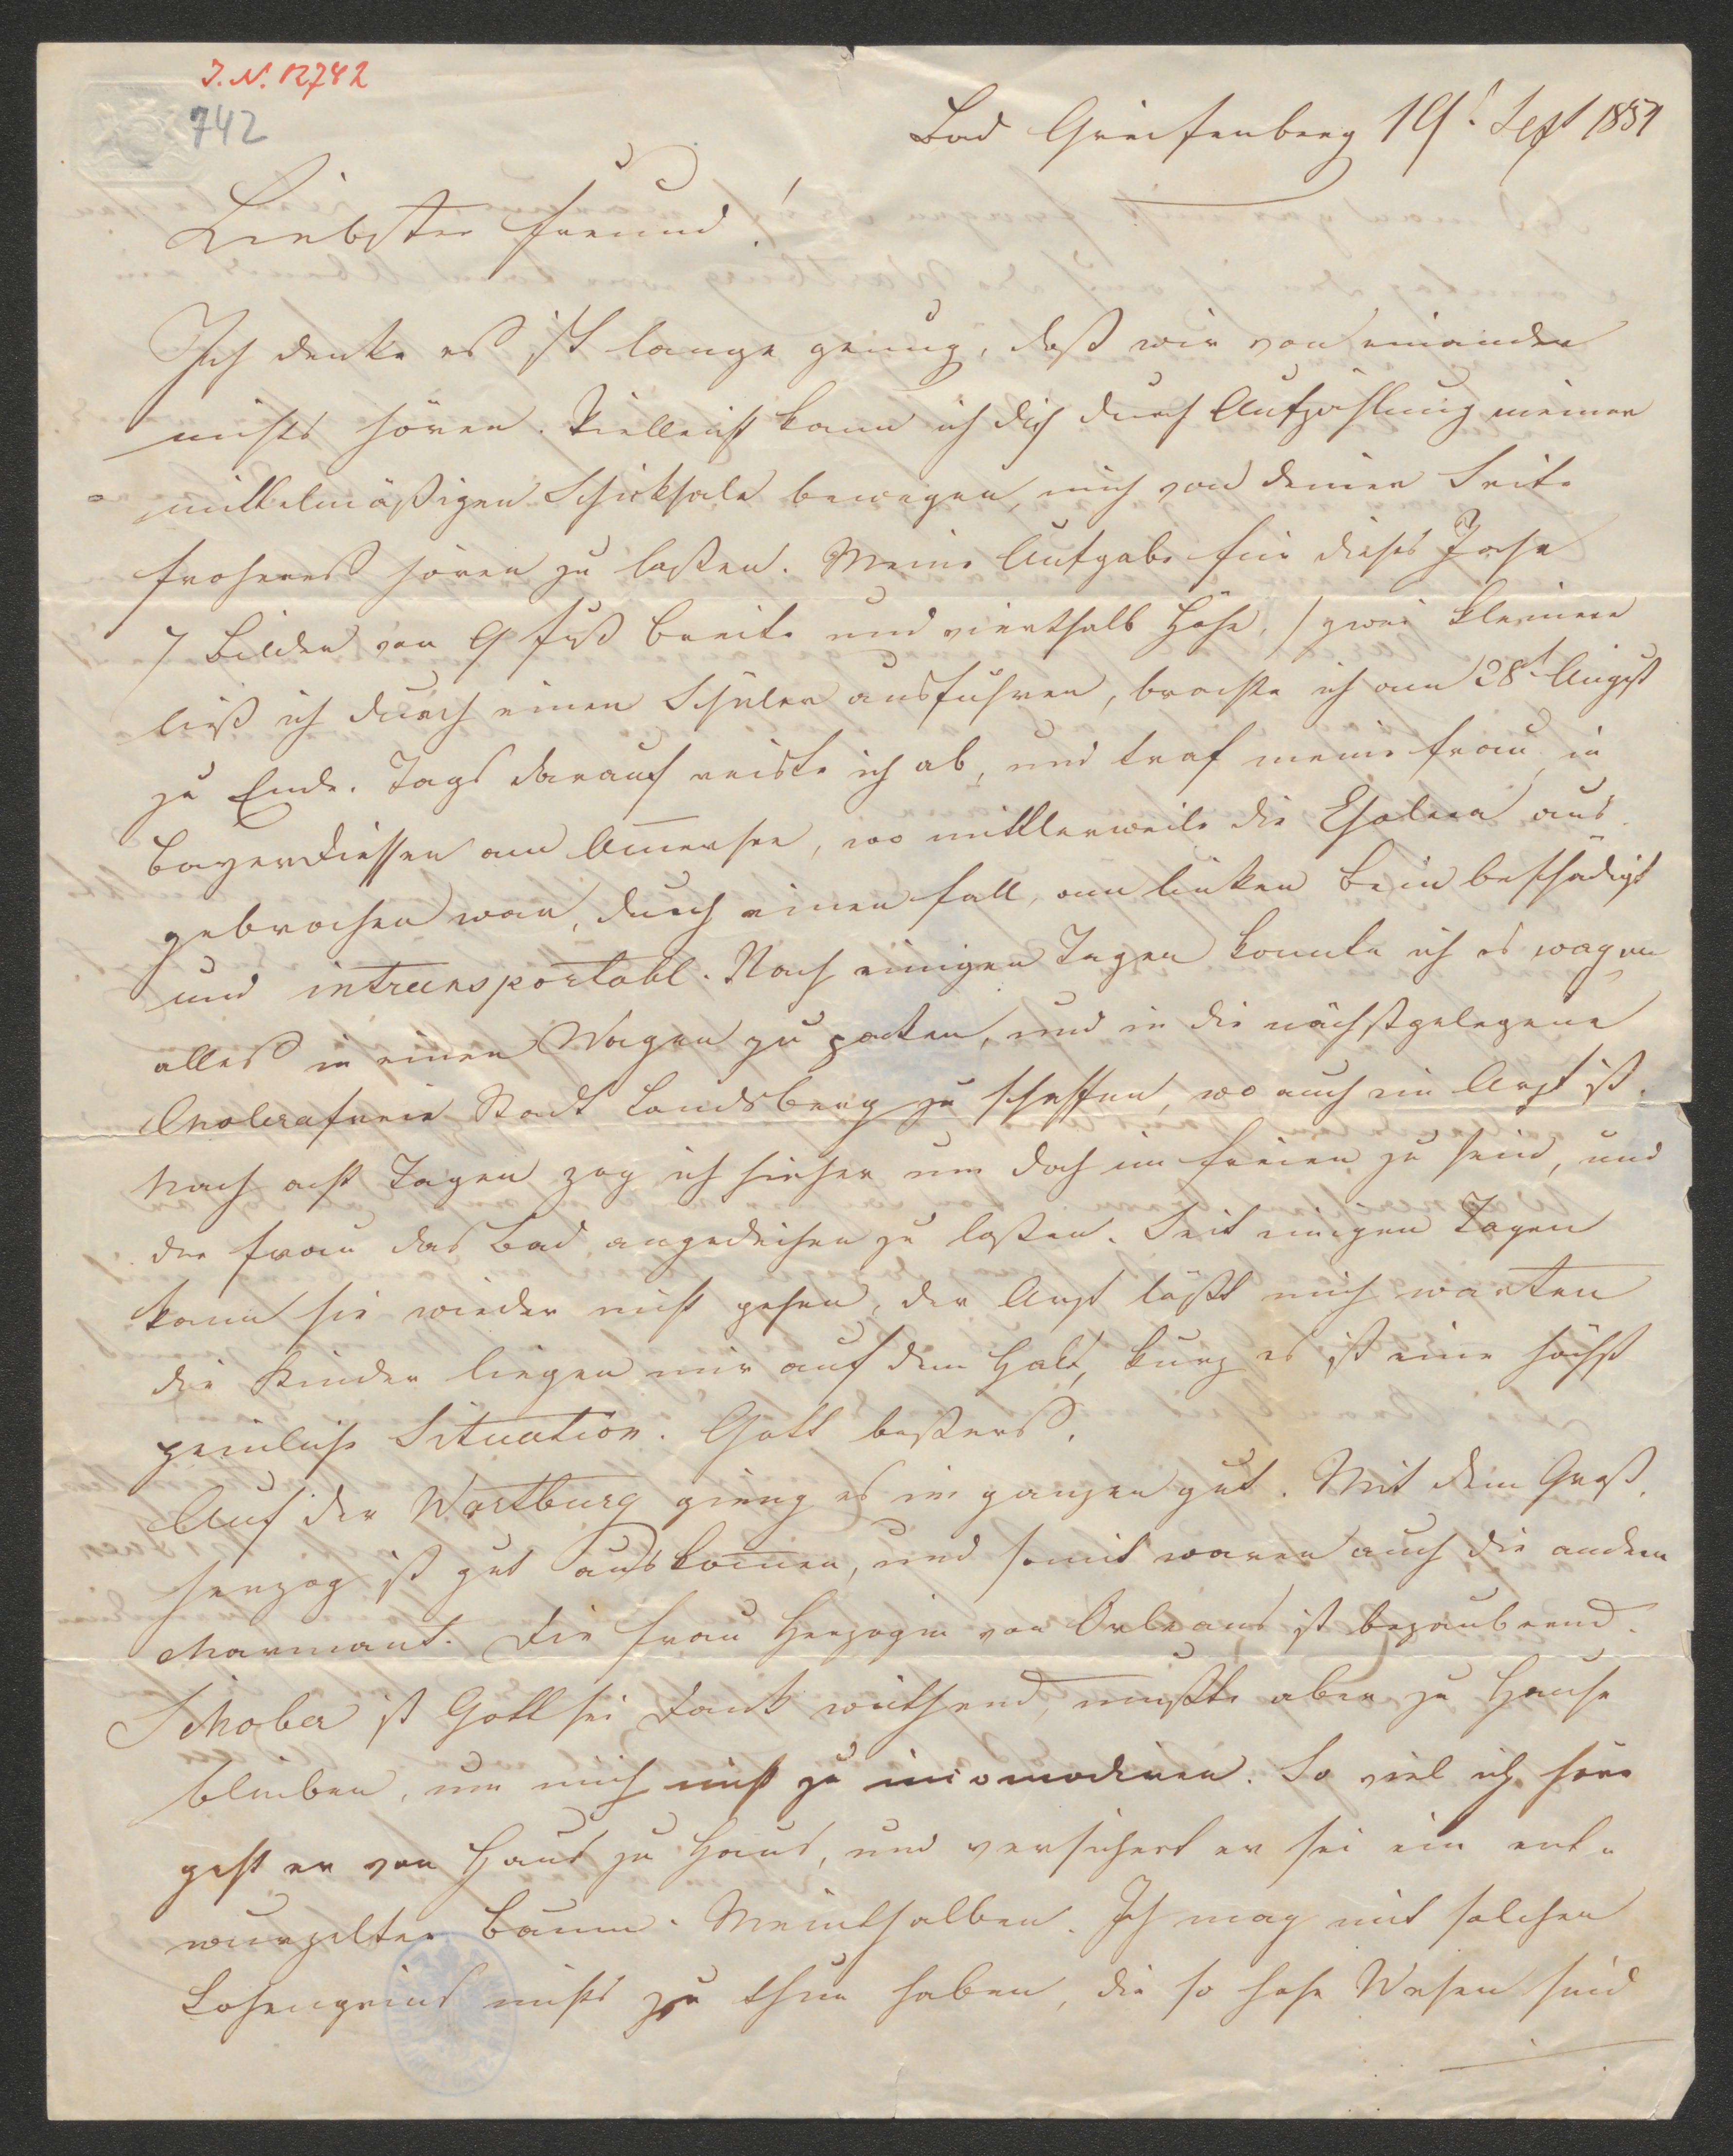 J. N. 12742
742
Bad Greifenberg 19t Sept 1854
Liebster Freund!
Ich denke es ist lange genug, daß wir von einander
nichts hören. Vielleicht kann ich dich durch Aufzählung meiner
mittelmäßigen Schicksale bewegen, mich von deiner Seite
froheres hören zu laßen. Meine Aufgabe für dieses Jahr
7 Bilder von 9 Fuß Breite und vierthalb Höhe, / zwei kleinere
ließ ich durch einen Schüler ausführen, brachte ich am 28t August
zu Ende. Tags darauf reiste ich ab, und traf meine Frau in
Bayerdiessen am Amersee, wo mittlerweile die Cholera aus
gebrochen war, durch einen Fall, am linken Bein beschädigt
und intransportabl. Nach einigen Tagen konnte ich es wagen
alles in einen Wagen zu packen, und in die nächstgelegene
Cholerafreie Stadt Landsberg zu schaffen, wo auch ein Arzt ist.
Nach acht Tagen zog ich hieher um doch im Freien zu sein, und
der Frau das Bad angedeihen zu laßen. Seit einigen Tagen
kann sie wieder nicht gehen, der Arzt läßt mich warten
die Kinder liegen mir auf dem Hals, kurz es ist eine höchst
peinliche Situation. Gott beßers.
Auf der Wartburg gieng es im ganzen gut. Mit dem Groß,
herzog ist gut auskomen, und somit waren auch die andern
charmant. Die Frau Herzogin von Orleans ist bezaubernd.
Schober ist Gott sei Dank wüthend, mußte aber zu Hause
bleiben, um mich nicht zu incomodiren. So viel ich höre
geht er von Haus zu Haus, und versichert er sei ein ent-
wurzelter Baum. Meinthalben. Ich mag mit solchen
Lohengrins nichts zu thun haben, die so hohe Wesen sind